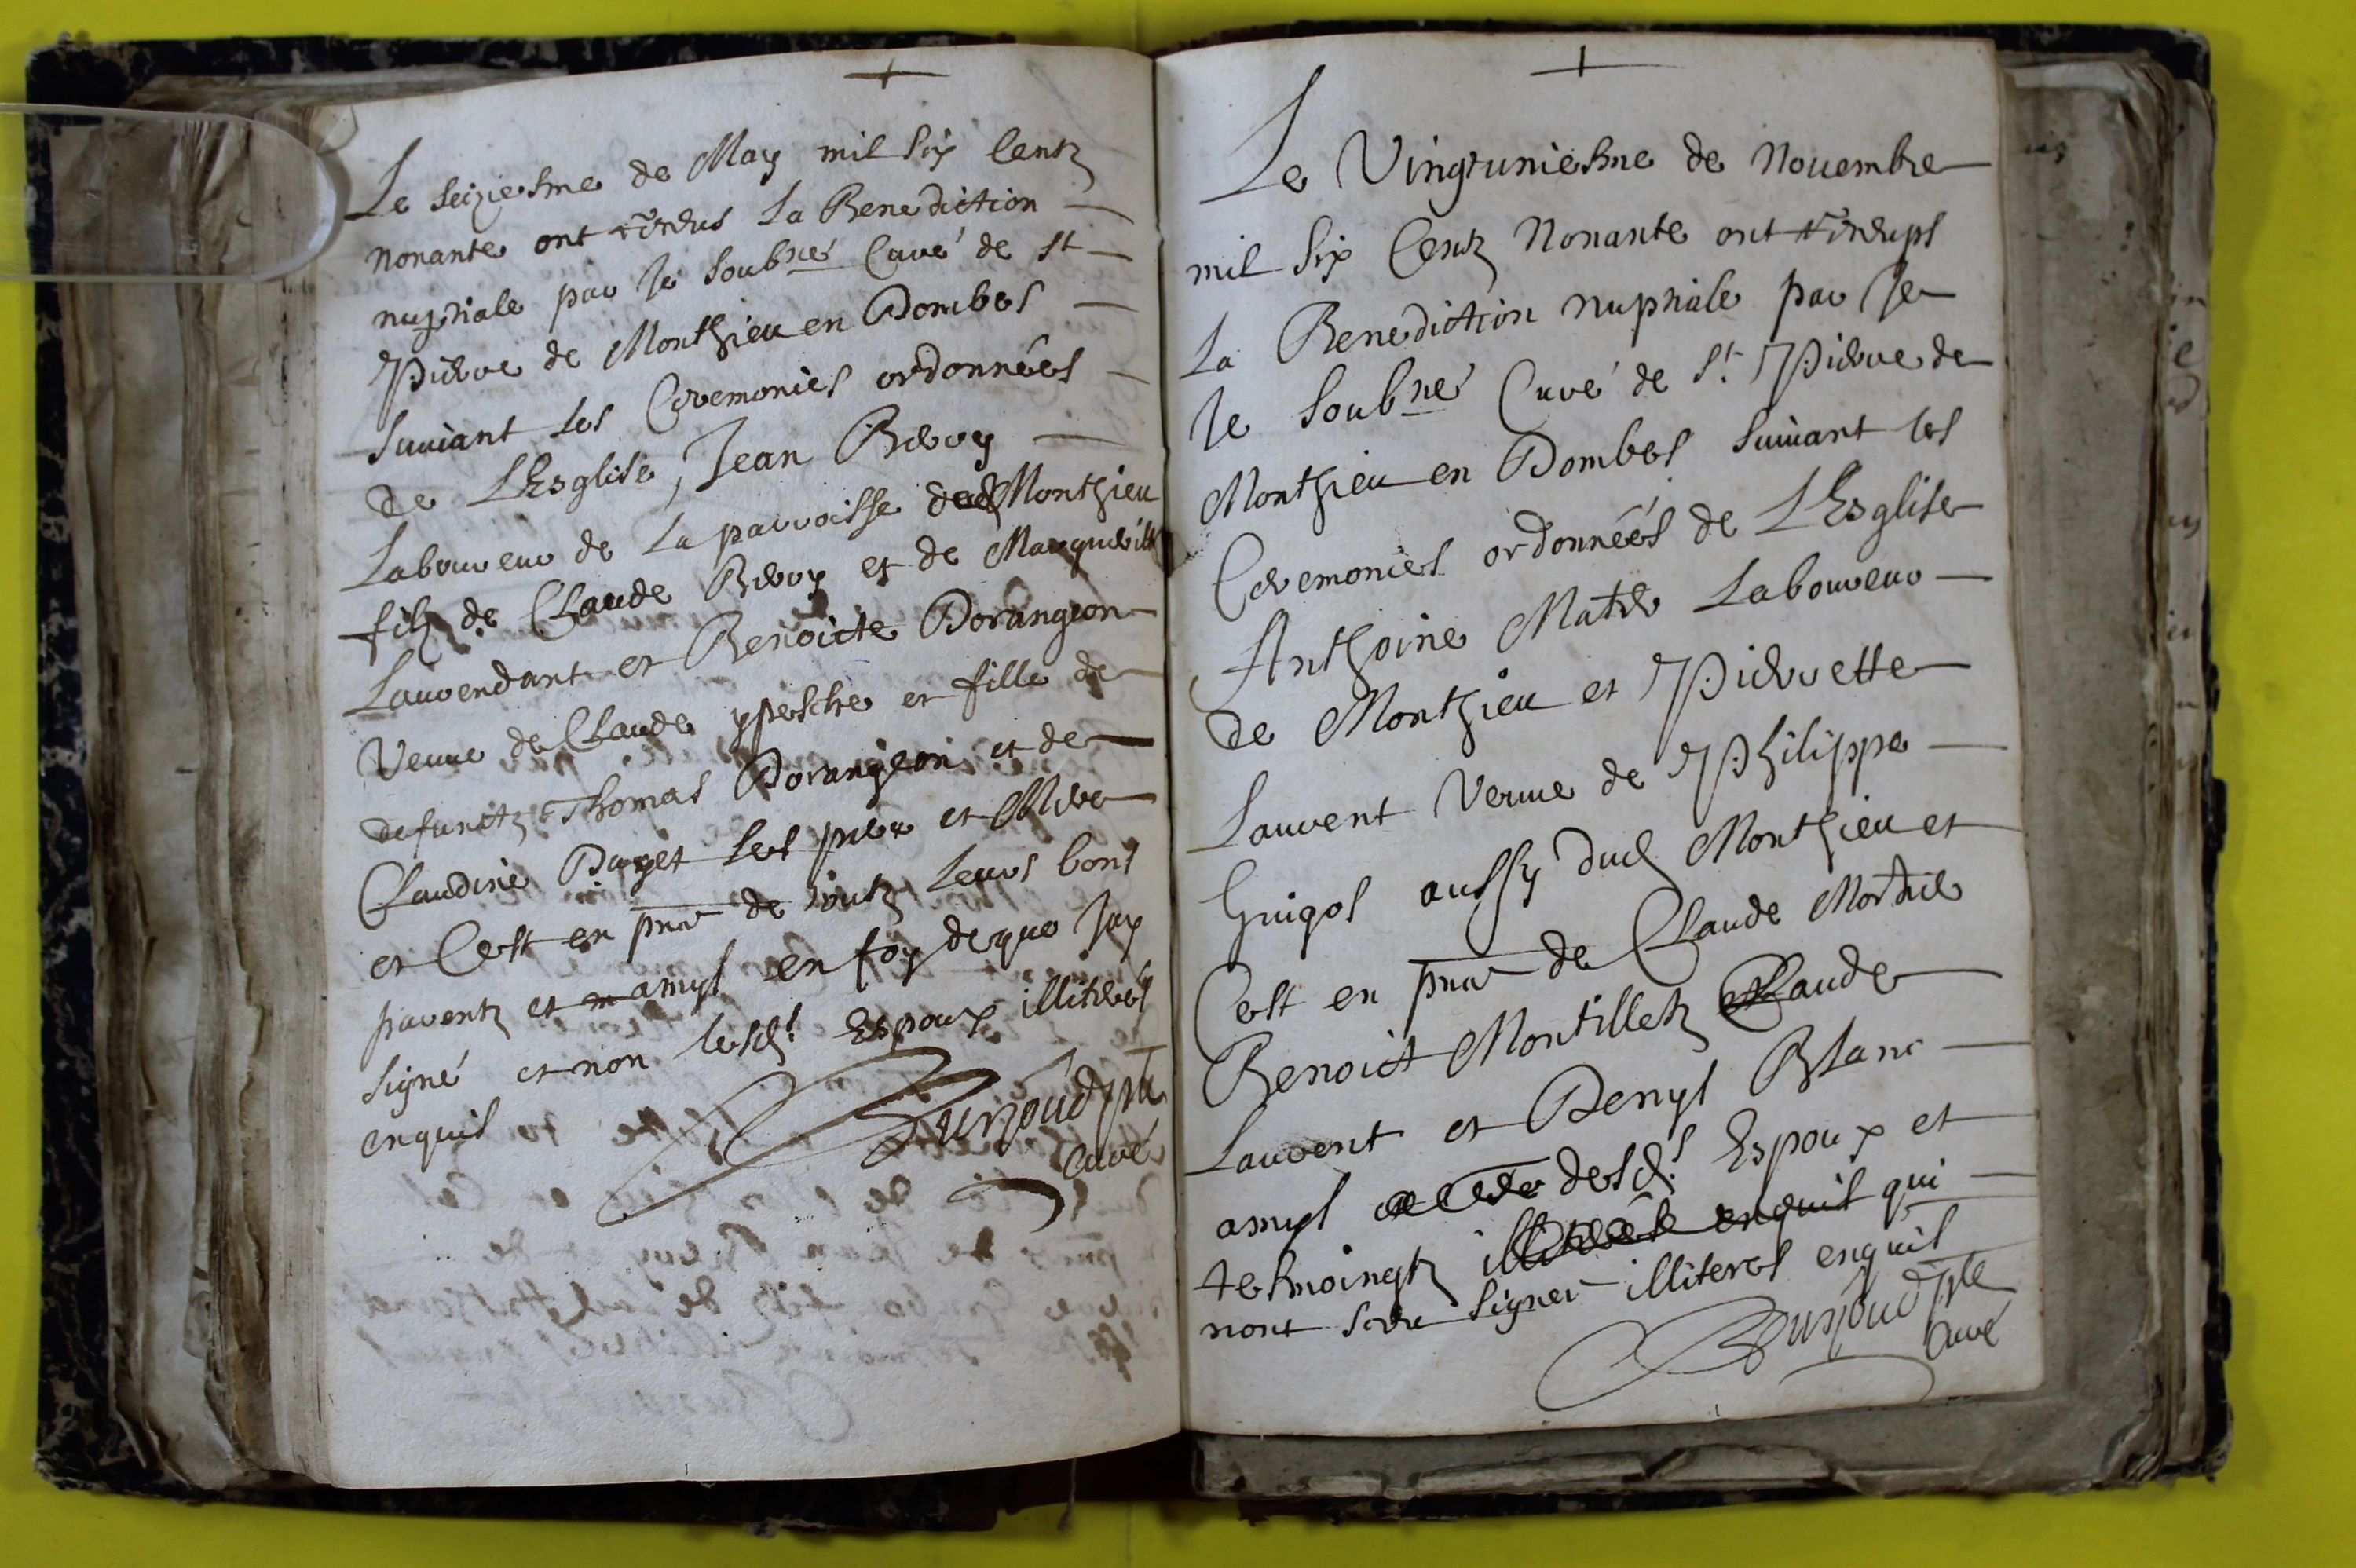 Le seiziesme de May mil six Centz
nonante ont receus la Benediction
nuptiale par Je soubné Curé de St
Pierre de Monthieu en Dombes
suivant les Ceremonies ordonnées
de L'Esglise, Jean Revoy
Laboureur de La parroisse dud Monthieu
filz de Claude Revoy et de
Laurendant et Benoicte Dorangeon
Veuve de Claude et fille de
defunctz Thomas Dorangeon et de
Claudine Payet ses pere et Mere
et Cest en pnce de touts leurs bons
parentz et amys en foy de quo Jay
signé et non lesds Espoux illiterés
enquis
ptre
Curé
Le Vingtuniesme de Novembre
mil six Centz Nonante ont receups
La Benediction nuptiale par Je
Je soubné Curé de St Pierre de
Monthieu en Dombes suivant les
Ceremonies ordonnéés de L'Esglise
Anthoine Laboureur
de Monthieu et Pierrette
Laurent Veuve de Philippe
Guigos aussy dud Monthieu et
Cest en pnce de Claude
Benoict Montilletz Claude
Laurent et Denys Blanc
amys desds Espoux et
tesmoingtz illiterés enquis qui
nont sceu signer illiteres enquis
ptre
Curé